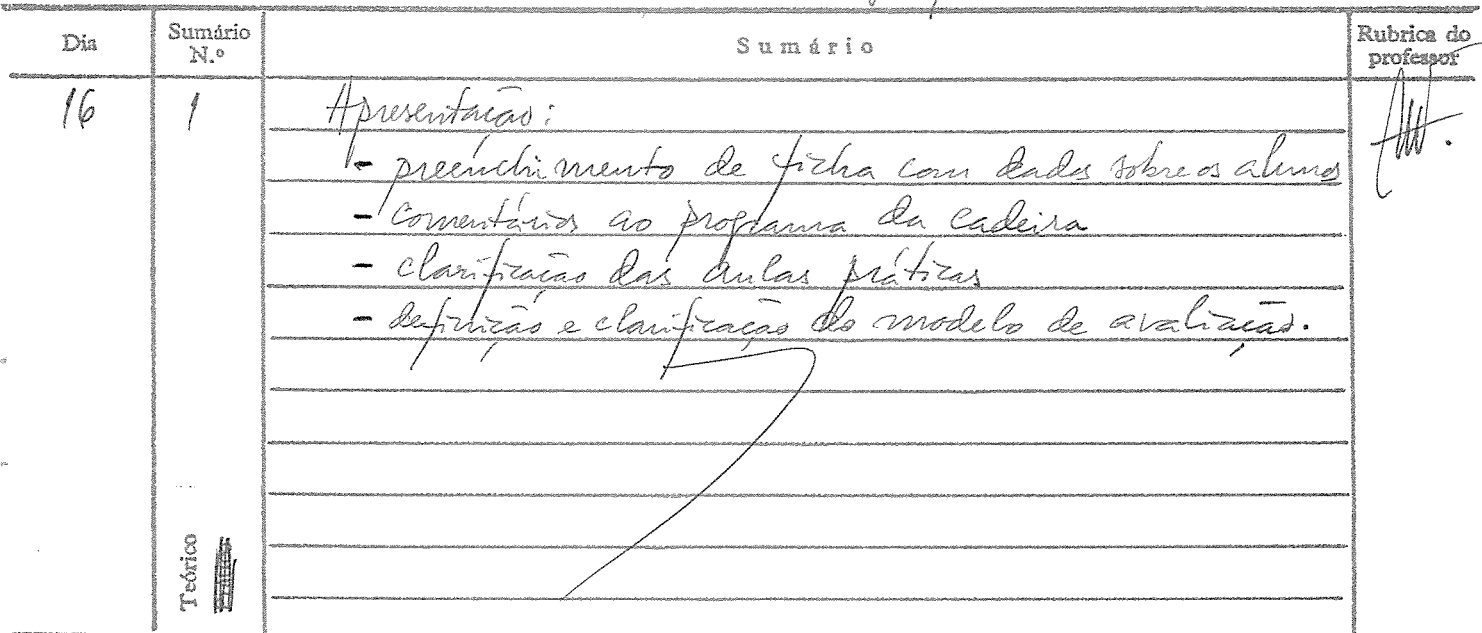 Dia
Sumário N.º
Sumário
Rubrica do professor
16
1
Apresentação:
- preenchimento de ficha com dados sobre os alunos
- comentários ao programa da cadeira
- clarificação das aulas práticas
- definição e clarificação do modelo de avaliação.
Teórico